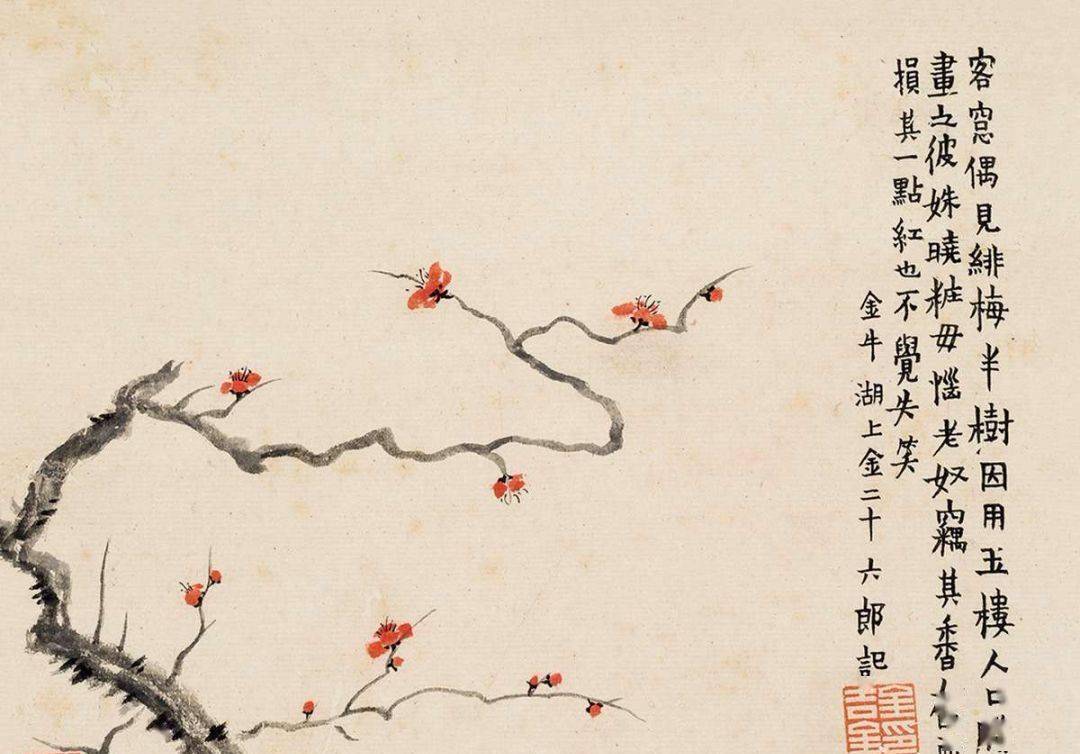 客窓偶見緋梅半樹因用玉樓人口
畫之彼姝曉粧毋惱老奴竊其香
損其一點紅也不覺失笑
金牛湖上金二十六郎記
金印
吉金